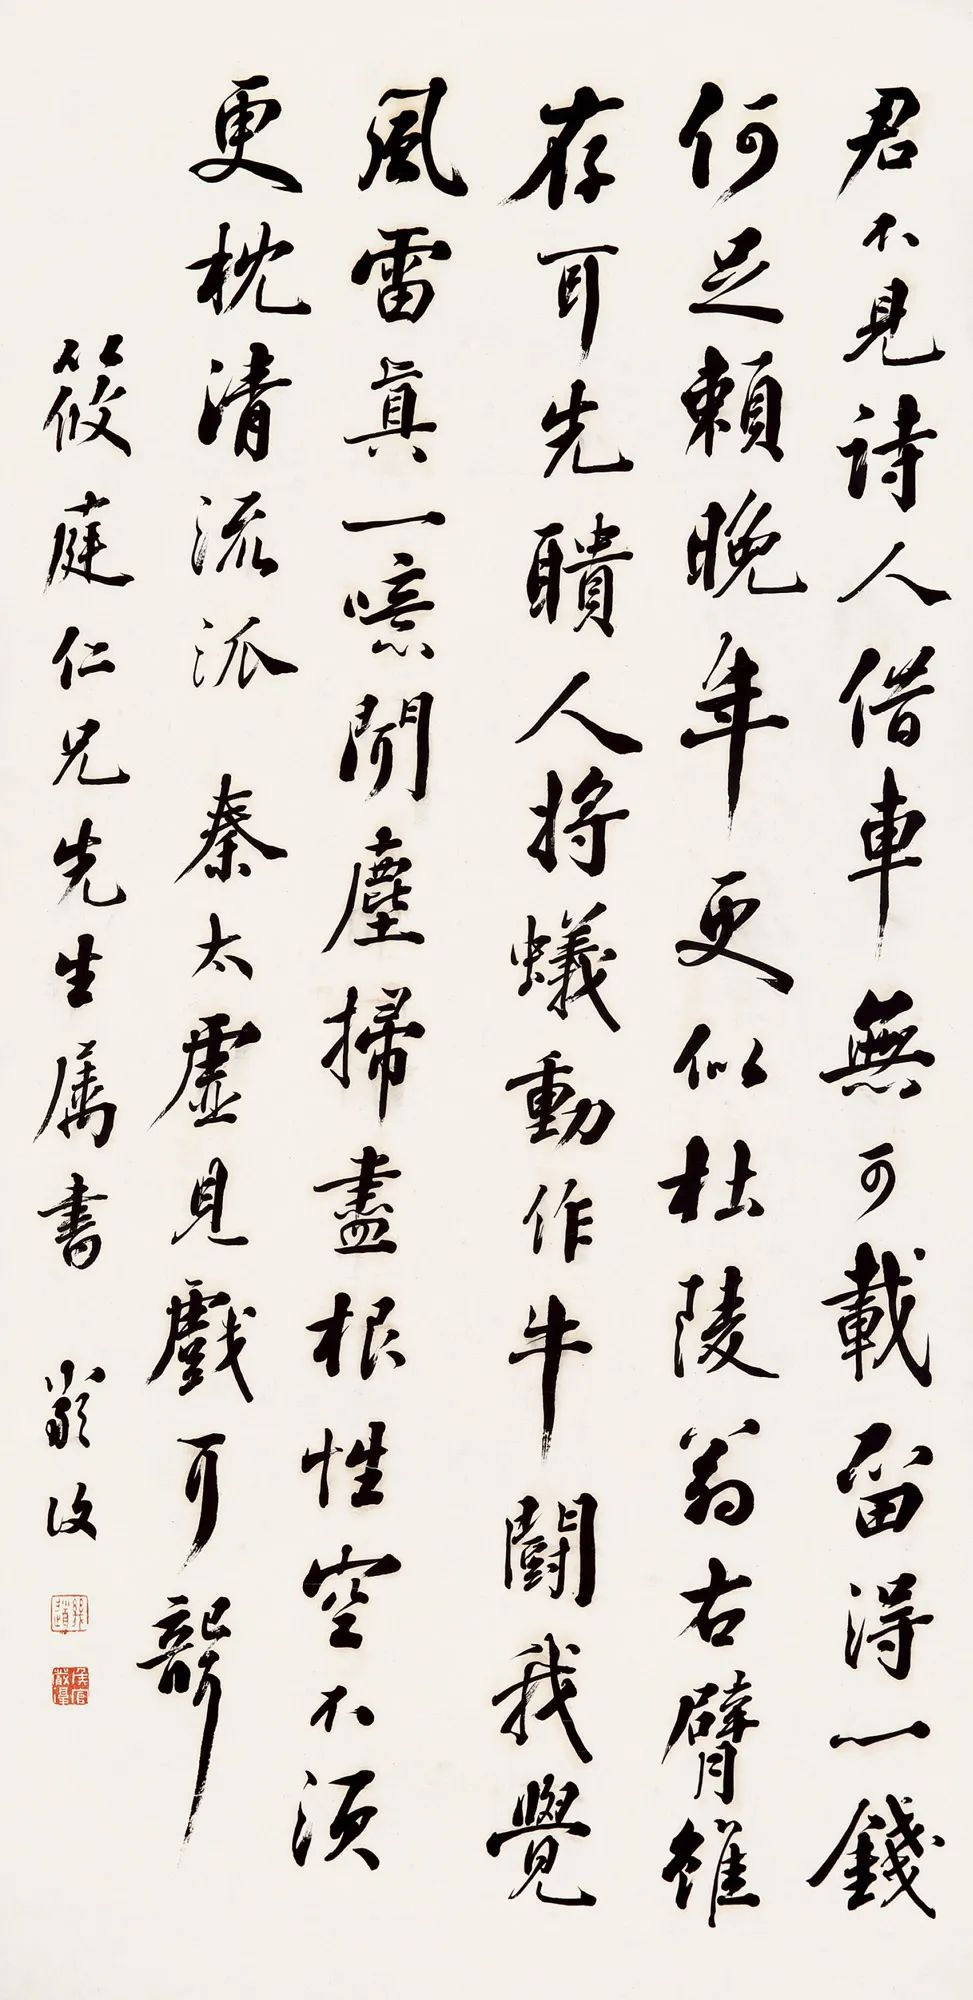 君不見詩人借車無可載留得一錢
何足賴晚年更似杜陵翁右臂雖
存耳先聵人將蟻動作牛鬭我覺
風雷真一噫聞塵掃盡根性空不須
更枕清流派 秦太虛見戲耳聾
筱庭仁兄先生属書 嚴復
侯官嚴復